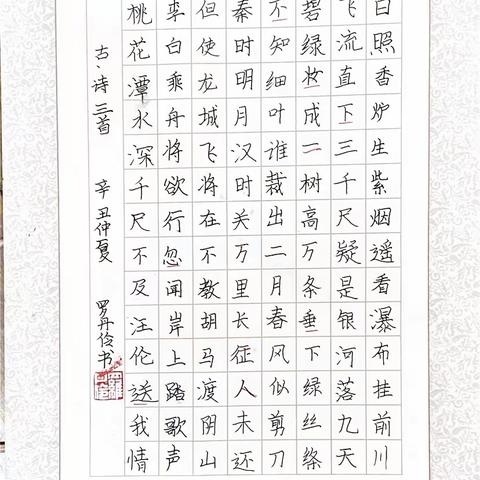 日照香炉生紫烟遥看瀑布挂前川
飞流直下三千尺疑是银河落九天
碧绿妆成一树高万条垂下绿丝绦
不知细叶谁裁出二月春风似剪刀
秦时明月汉时关万里长征人未还
但使龙城飞将在不教胡马渡阴山
李白乘舟将欲行忽闻岸上踏歌声
桃花潭水深千尺不及汪伦送我情
古、诗三首 辛丑仲夏 罗丹伶书